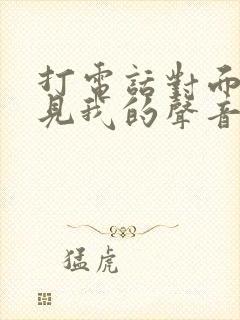 打電話對而
見我的聲音
猛虎